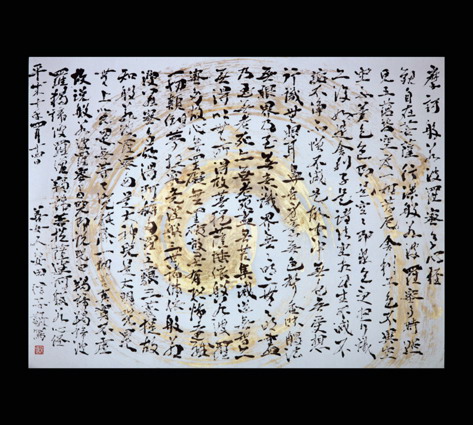 摩訶般若波羅蜜多心経
観自在菩薩行深般若波羅蜜多時照
見五蘊皆空度一切苦厄舎利子色不異空
空不異色色即是空空即是色受想行識
亦復如是舎利子是諸法空相不生不滅不
垢不浄不増不減是故空中無色無受想
行識無眼耳鼻舌身意無色声香味触法
無眼界乃至無意識界無無明亦無無明尽
乃至無老死亦無老死尽無苦集滅道無智亦
無得以無所得故菩提薩埵依般若波羅
蜜多故心無罣礙無罣礙故無有恐怖遠離
一切顛倒夢想究竟涅槃三世諸仏依般若
波羅蜜多故得阿耨多羅三藐三菩提故
知般若波羅蜜多是大神呪是大明呪是無
上呪是無等等呪能除一切苦真実不虚
故説般若波羅蜜多呪即説呪曰羯諦羯諦波
羅羯諦波羅僧羯諦菩提薩婆訶般若心経
平成二十年四月
善女人安田